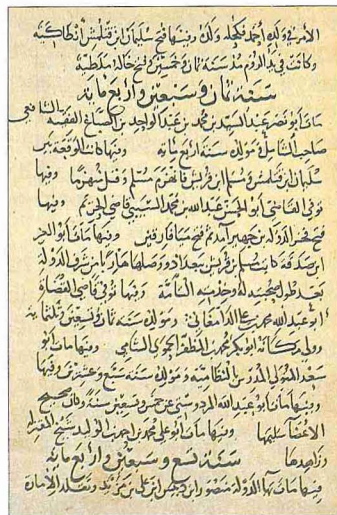 الامر في ولده احمد فكحله ولك وفيها فتح سليمان ابن قتلمش انطاكية
وكانت في يد الروم مذ سنة ثمان وخمسين وفتح خاله ملطية
سنة ثمان وسبعين واربع مايه
مات ابو نصر عبد السيد بن محمد بن عبد الواحد بن الصباغ الفقيه الشافعي
صاحب الشامل ومولده سنة اربع مايه وفيها كانت الوقعة بين
سليمان ابن قتلمش ومسلم ابن قريش فانهزم مسلم وقتل وفيها
توفي القاضي ابو الحسن عبد الله بن محمد السيبي قاضي الحريم وفيها
فتح فخر الدولة بن جهير آمد ثم فتح ميافارقين وفيها مات ابو العز
ابن صدقة كاتب مسلم بن قريش ببغداد ووصلها هاربا من شرف الدولة
بعد طول صحبته له وخدمته السالفة وفيها توفي قاضي القضاة
ابو عبد الله محمد بن علي الدامغاني ومولده سنة ثمان وتسعين وثلثمايه
وولي مكانه ابو بكر محمد بن المظفر الحموي الشامي وفيها مات ابو
سعد المتولي المدرس بالنظامية ومولده سنة سبع وعشرين وفيها
وفيها مات ابو عبد الله المردوستي عن خمس وتسعين سنة وكان صحيح
الاعضا سليمها وفيها مات ابو علي محمد بن احمد بن الوليد شيخ المعتزلة
وزاهدها سنة تسع وسبعين واربع مايه
فيها مات بها الدولة منصور ابن دبيس ابن علي بن مزيد وتقلد الامارة